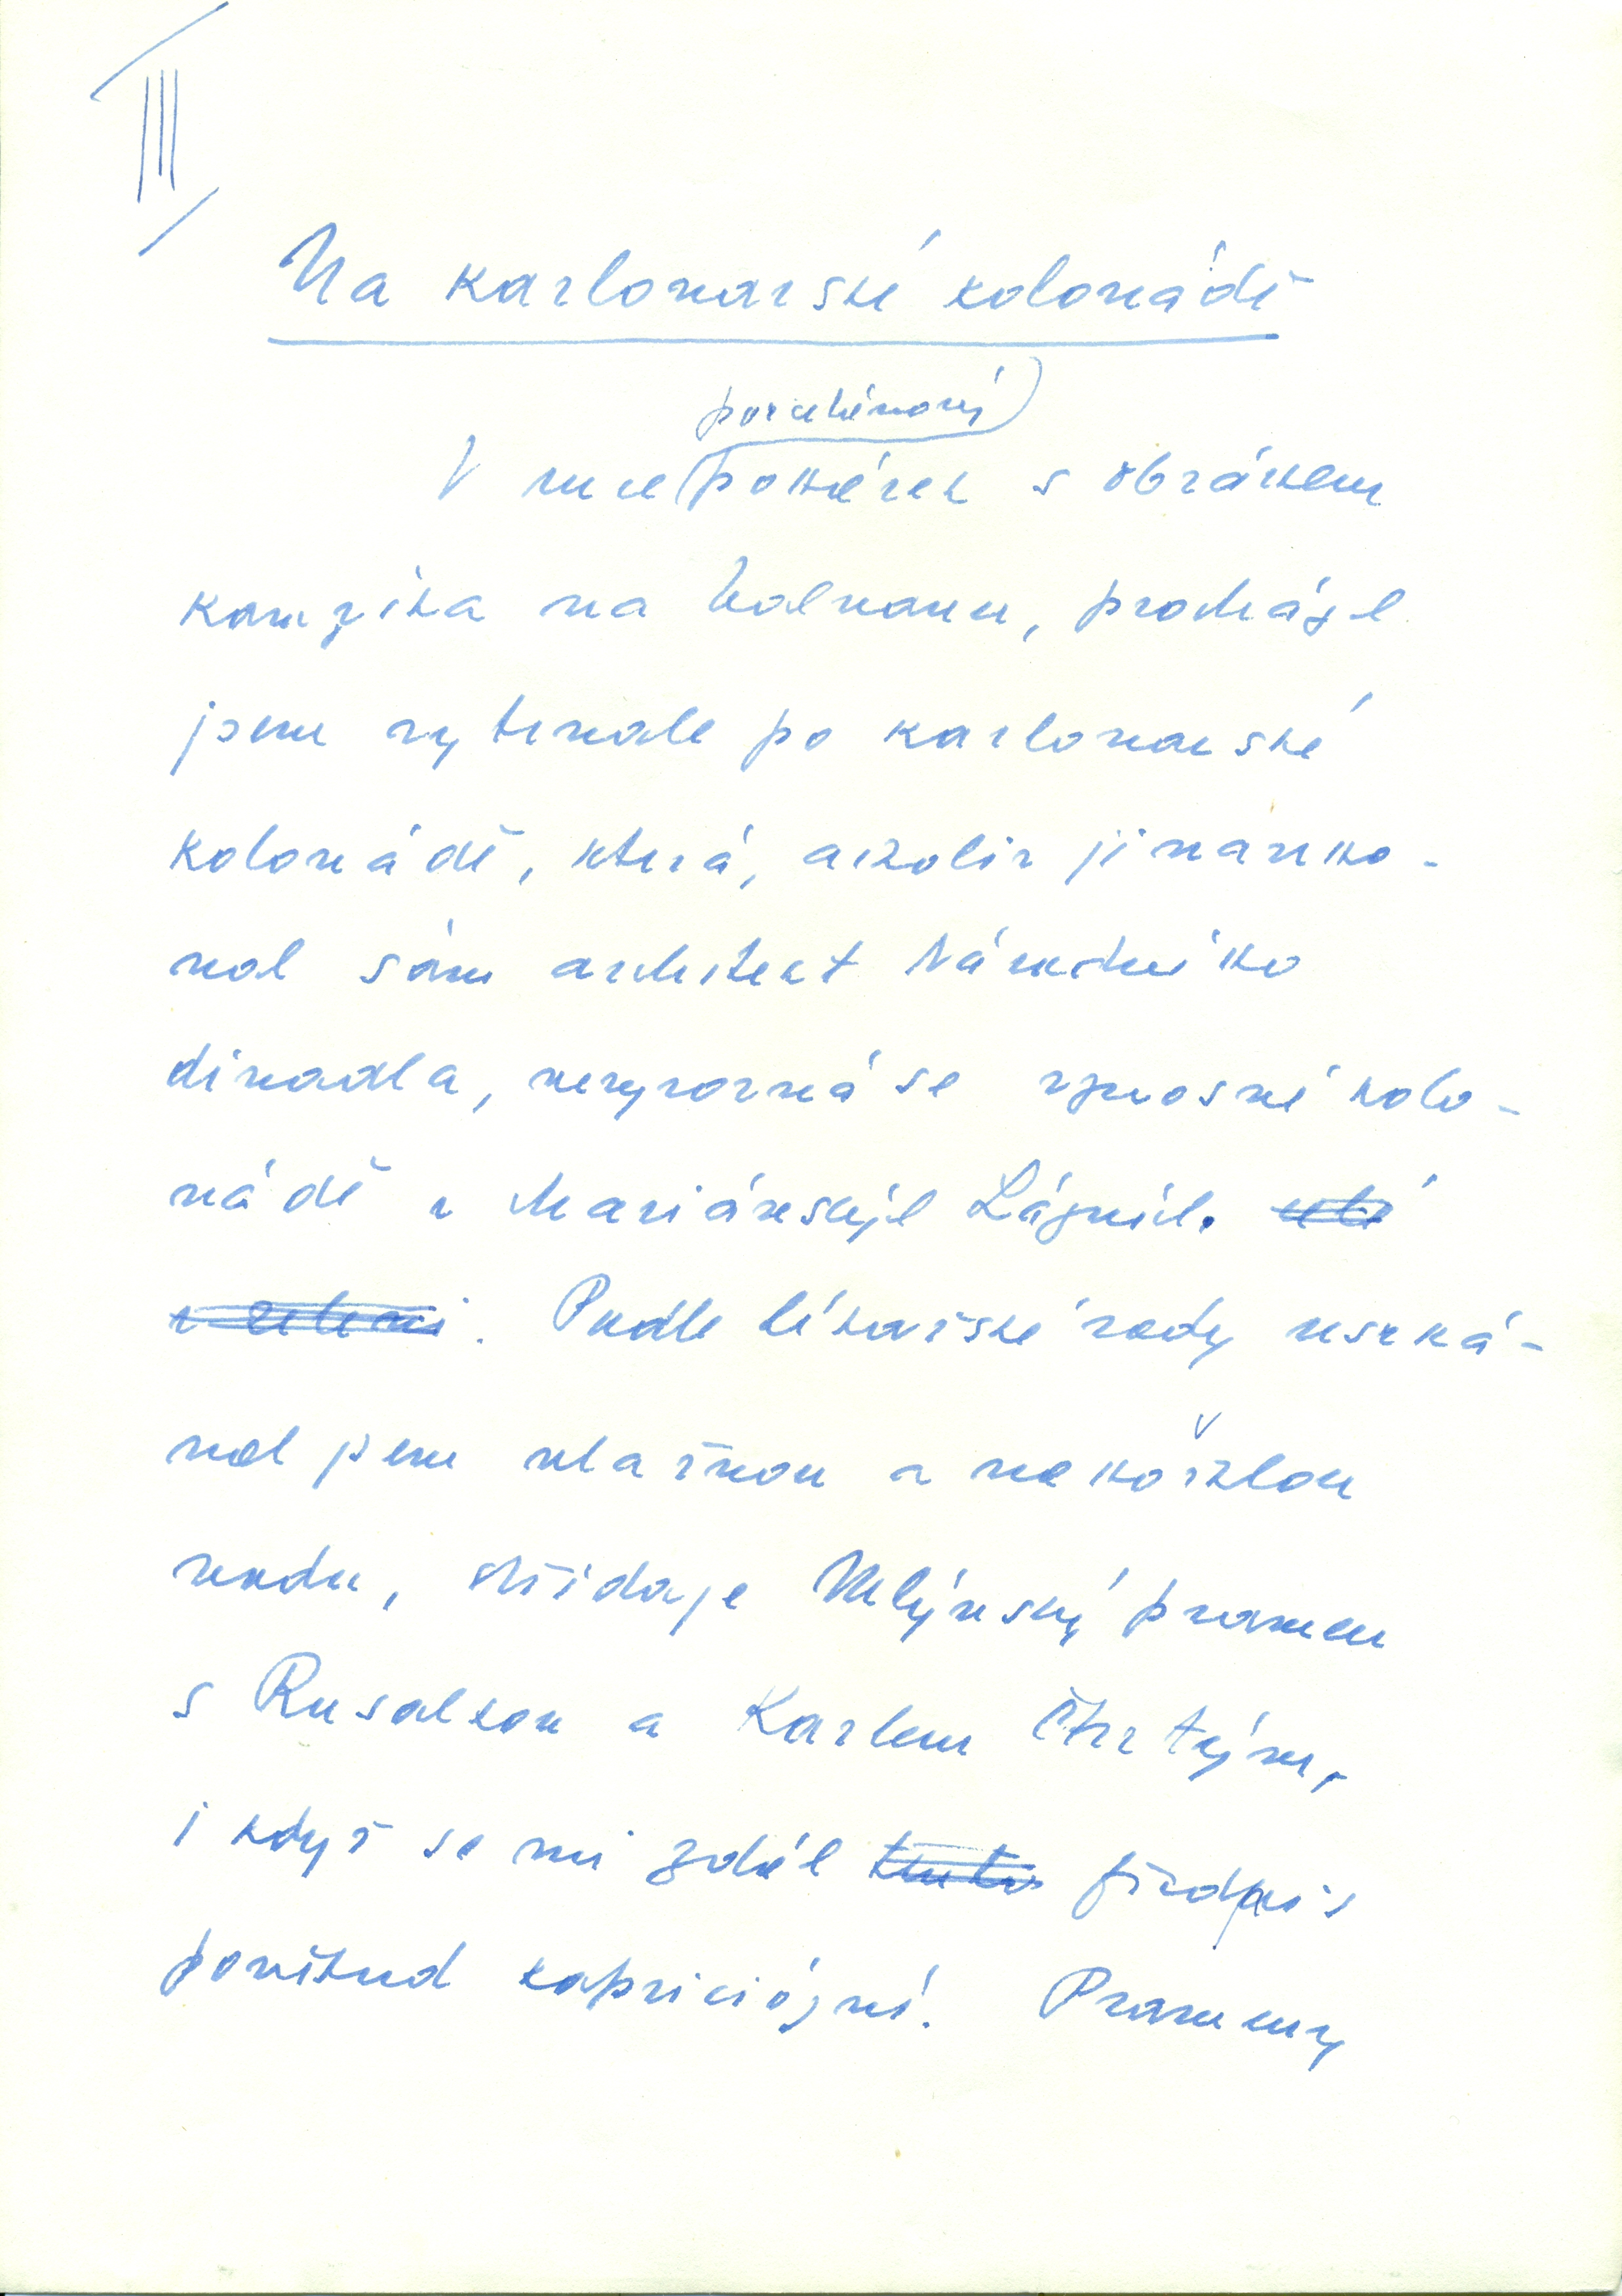 III
Na karlovarské kolonádě
porcelánový
V ruce pohárek s obrázkem
kamzíka na balvanu, procházel
jsem vytrvale po karlovarské
kolonádě, která, ačkoliv ji navrho-
val sám architekt Národního
divadla, nevyrovná se vznosné kolo-
nádě v Mariánských Lázních.
v zeleni. Podle lékařské rady usrká-
val jsem vlažnou a nahořklou
vodu, střídaje Mlýnský pramen
s Rusalkou a Karlem Čtvrtým,
i když se mi zdál tento předpis
poněkud kapriciózní. Prameny